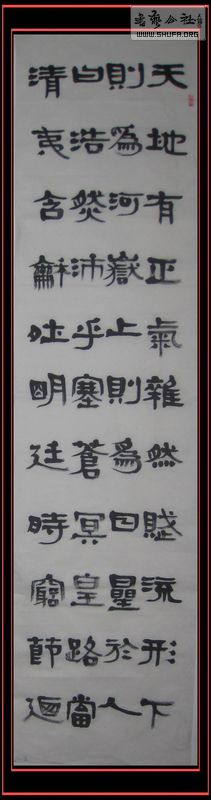 天地有正氣雜然賦流形下
則為河嶽上則為日星於人
曰浩然沛乎塞蒼冥皇路當
清夷含龢吐明廷時窮節迺
書藝公社
WWW.SHUFA.ORG